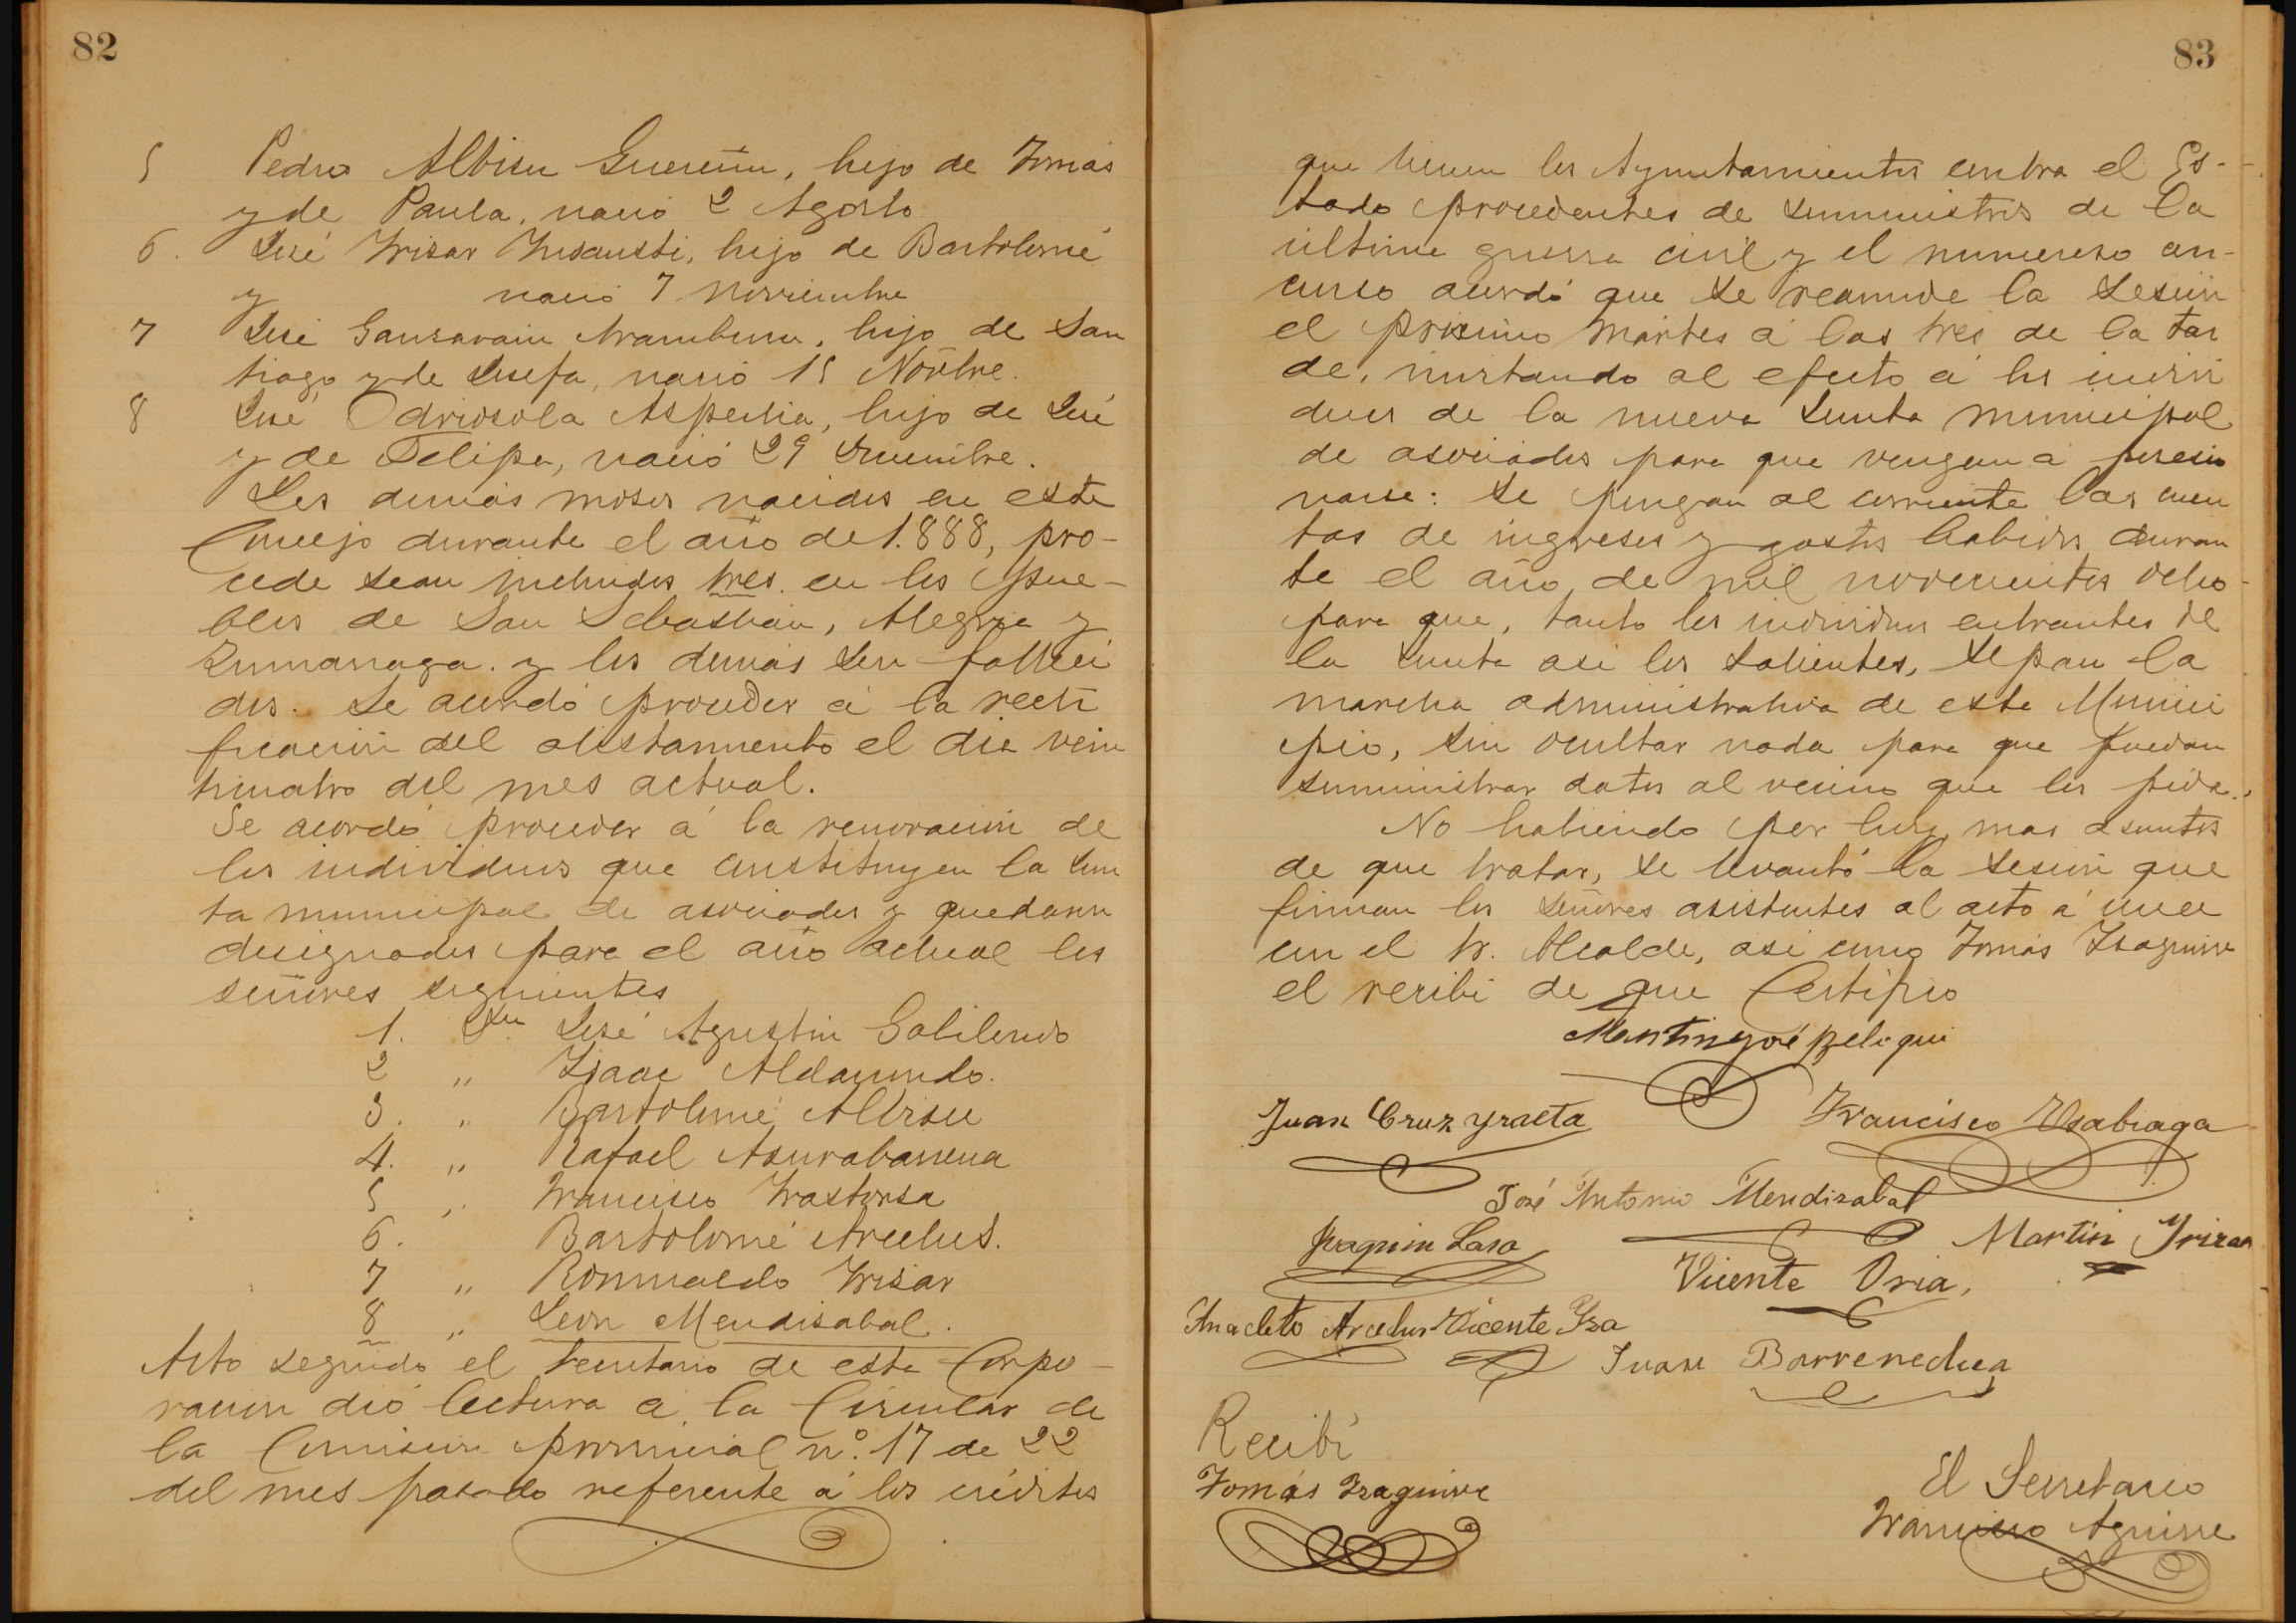 82
5 Pedro Albisu Guereñu, hijo de Tomás
y de Paula, nació 2 Agosto
6. José Irisar Insausti, hijo de Bartolomé
y nació 7 Noviembre
7 José Garzarain Aramburu, hijo de San
tiago y de Josefa, nació 15 Novbre.
8 José Odriosola Aspeitia, hijo de José
y de Felipa, nació 29 Diciembre.
Los demás mosos nacidos en este
Concejo durante el año de 1.888, pro-
cede sean incluidos tres en los pue-
blos de San Sebastián, Alegria y
Zumarraga. y los demás son falleci
dos. Se acordó proceder á la recti
ficación del alistamiento el dia vein
ticuatro del mes actual.
Se acordó proceder á la renovación de
los individuos que constituyen la Jun
ta municipal de asociados y quedaron
designados para el año actual los
señores siguientes
1. Dn José Agustin Galilondo
2 " Isaac Aldasundo.
3. " Bartolomé Albisu
4. " Rafael Asurabarrena
5 " Francisco Irastorsa
6. Bartolomé Arcelus.
7 " Romualdo Irisar
8 " León Mendisabal.
Acto seguido el Secretario de esta Corpo-
ración dió lectura á la Circular de
la Comisión provincial nº. 17 de 22
del mes pasado referente á los créditos
83
que tienen los Ayuntamientos contra el Es-
tado procedentes de suministros de la
ultima guerra civil y el numeroso con-
curso acordó que se reanude la sesión
el prosimo Martes á las tres de la tar
de, invitando al efecto á los indivi
duos de la nueva Junta municipal
de asociados para que vengan á posesio
narse: se pongan al corriente las cuen
tas de ingresos y gastos habidos duran
te el año de mil novecientos ocho
para que, tanto los individuos entrantes de
la Junta asi los salientes, sepan la
marcha administrativa de este Munici
pio, sin ocultar nada para que puedan
suministrar datos al vecino que los pida.
No habiendo por hoy mas asuntos
de que tratar, se levantó la sesión que
firman los señores asistentes al acto á una
con el Sr. Alcalde, asi como Tomás Izaguirre
el recibi de que Certifico
Martin José peloqui
Juan Cruz yraeta
Francisco Usabiaga
José Antonio Mendizabal
Joaquin Lasa
Martin Yrizar
Vicente Oria.
Anacleto Arcelus Vicente Ysa
Juan Barrenechea
Recibí
Tomás Izaguirre
El Secretario
Francisco Aguirre